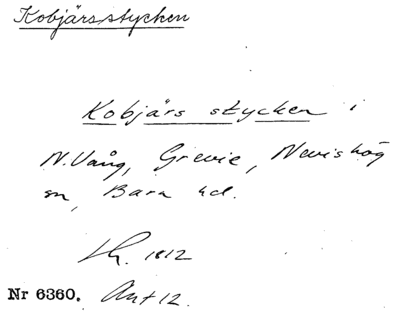 Kobjärsstycken
Kobjärs stycken i
N. Vång, Grevie, Nevishög
sn, Bara hd.
Lh. 1812
Nr 6360. Akt 12.